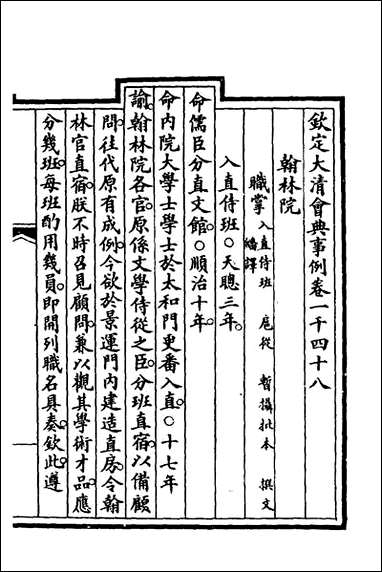 欽定大清會典事例卷一千四十八
翰林院
職掌 入直侍班 扈從 暫攝批本 撰文
繙譯
入直侍班○天聰三年
命儒臣分直文館○順治十年
命內院大學士學士於太和門更番入直○十七年
諭翰林院各官原係文學侍從之臣分班直宿以備顧
問往代原有成例今欲於景運門內建造直房令翰
林官直宿朕不時召見顧問兼以觀其學術才品應
分幾班每班酌用幾員即開列職名具奏欽此遵